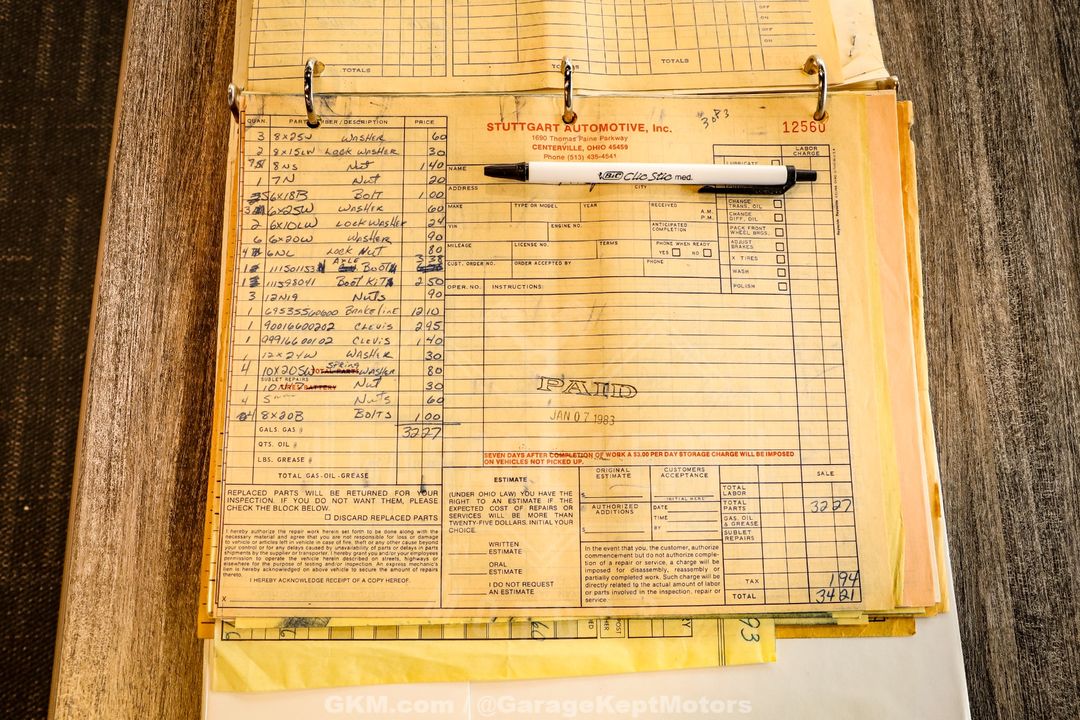 OFF
ON
OFF
ON
OFF
TOTALS
TOTALS
TOTALS
QUAN. PART NUMBER / DESCRIPTION PRICE
3 8X25W WASHER 60
2 8X15LW LOCK WASHER 30
8NS NUT 1 40
1 7N NUT 20
5 6X18B BOLT 1.00
3 6X25W WASHER 60
2 6X10LW LOCK WASHER 24
6 6X20W WASHER 90
4 6NL LOCK NUT 80
1 111501153 AXLE BOOT 3 38
1 111598041 BOOT KIT 2 50
3 12N19 NUTS 90
1 69535560600 BRAKELINE 12 10
1 90016600202 CLEVIS 2 95
1 99916600102 CLEVIS 1 40
1 12X24W WASHER 30
4 10X20SW SPRING WASHER 80
TOTAL PARTS
SUBLET REPAIRS
1 10 NUT 30
4 5 NUTS 60
4 8X20B BOLTS 1 00
GALS. GAS @ 32 27
QTS. OIL @
LBS. GREASE @
TOTAL GAS-OIL-GREASE
REPLACED PARTS WILL BE RETURNED FOR YOUR
INSPECTION. IF YOU DO NOT WANT THEM, PLEASE
CHECK THE BLOCK BELOW.
DISCARD REPLACED PARTS
I hereby authorize the repair work herein set forth to be done along with the
necessary material and agree that you are not responsible for loss or damage
to vehicle or articles left in vehicle in case of fire, theft or any other cause beyond
your control or for any delays caused by unavailability of parts or delays in parts
shipments by the supplier or transporter. I hereby grant you and/or your employees
permission to operate the vehicle herein described on streets, highways or
elsewhere for the purpose of testing and/or inspection. An express mechanic's
lien is hereby acknowledged on above vehicle to secure the amount of repairs
thereto.
I HEREBY ACKNOWLEDGE RECEIPT OF A COPY HEREOF.
X
3083
STUTTGART AUTOMOTIVE, Inc.
1690 Thomas Paine Parkway
CENTERVILLE, OHIO 45459
Phone (513) 435-4541
12560
LABOR CHARGE
LUBRICATE
BIC Clic Stic med.
NAME
ADDRESS CITY
MAKE TYPE OR MODEL YEAR RECEIVED A.M. P.M.
VIN ENGINE NO. ANTICIPATED COMPLETION
MILEAGE LICENSE NO. TERMS PHONE WHEN READY YES NO
CUST. ORDER NO. ORDER ACCEPTED BY PHONE
OPER. NO. INSTRUCTIONS:
CHANGE TRANS. OIL
CHANGE DIFF. OIL
PACK FRONT WHEEL BRGS.
ADJUST BRAKES
X TIRES
WASH
POLISH
PAID
JAN 07 1983
SEVEN DAYS AFTER COMPLETION OF WORK A $3.00 PER DAY STORAGE CHARGE WILL BE IMPOSED
ON VEHICLES NOT PICKED UP.
ESTIMATE
(UNDER OHIO LAW) YOU HAVE THE
RIGHT TO AN ESTIMATE IF THE
EXPECTED COST OF REPAIRS OR
SERVICES WILL BE MORE THAN
TWENTY-FIVE DOLLARS. INITIAL YOUR
CHOICE.
WRITTEN ESTIMATE
ORAL ESTIMATE
I DO NOT REQUEST AN ESTIMATE
ORIGINAL ESTIMATE
$
AUTHORIZED ADDITIONS
$
CUSTOMERS ACCEPTANCE
INITIAL HERE
DATE
TIME
BY
In the event that you, the customer, authorize
commencement but do not authorize comple-
tion of a repair or service, a charge will be
imposed for disassembly, reassembly or
partially completed work. Such charge will be
directly related to the actual amount of labor
or parts involved in the inspection, repair or
service.
SALE
TOTAL LABOR
TOTAL PARTS 32 27
GAS, OIL & GREASE
SUBLET REPAIRS
TAX 1 94
TOTAL 34 21
93
GKM.com / @GarageKeptMotors